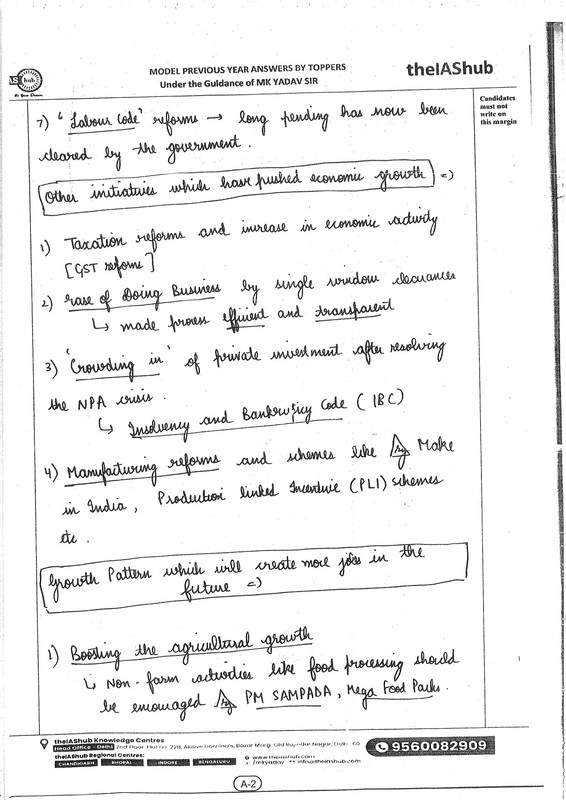 MODEL PREVIOUS YEAR ANSWERS BY TOPPERS
Under the Guidance of MK YADAV SIR
theIAShub
hub
Candidates
must not
write on
this margin
7) "Labour Code" reforms → long pending has now been
cleared by the government.
Other initiatives which have pushed economic growth ⇒
1) Taxation reforms and increase in economic activity
[GST reforms]
2) Ease of Doing Business by single window clearances
↳ made process efficient and transparent
3) 'Crowding in' of private investment after resolving
the NPA crisis.
↳ Insolvency and Bankruptcy Code (IBC)
4) Manufacturing reforms and schemes like Make
in India, Production linked Incentive (PLI) schemes
etc.
Growth Pattern which will create more jobs in the
future ⇒
1) Boosting the agricultural growth
↳ Non-farm activities like food processing should
be encouraged PM SAMPADA, Mega Food Parks.
theIAShub Knowledge Centres
Head Office - Delhi 2nd Floor Bazar Marg, Old Rajinder Nagar, Delhi - 60
theIAShub Regional Centres:
CHANDIGARH BHOPAL INDORE BENGALURU
www.theiashub.com
/mkyadav info@theiashub.com
9560082909
A-2